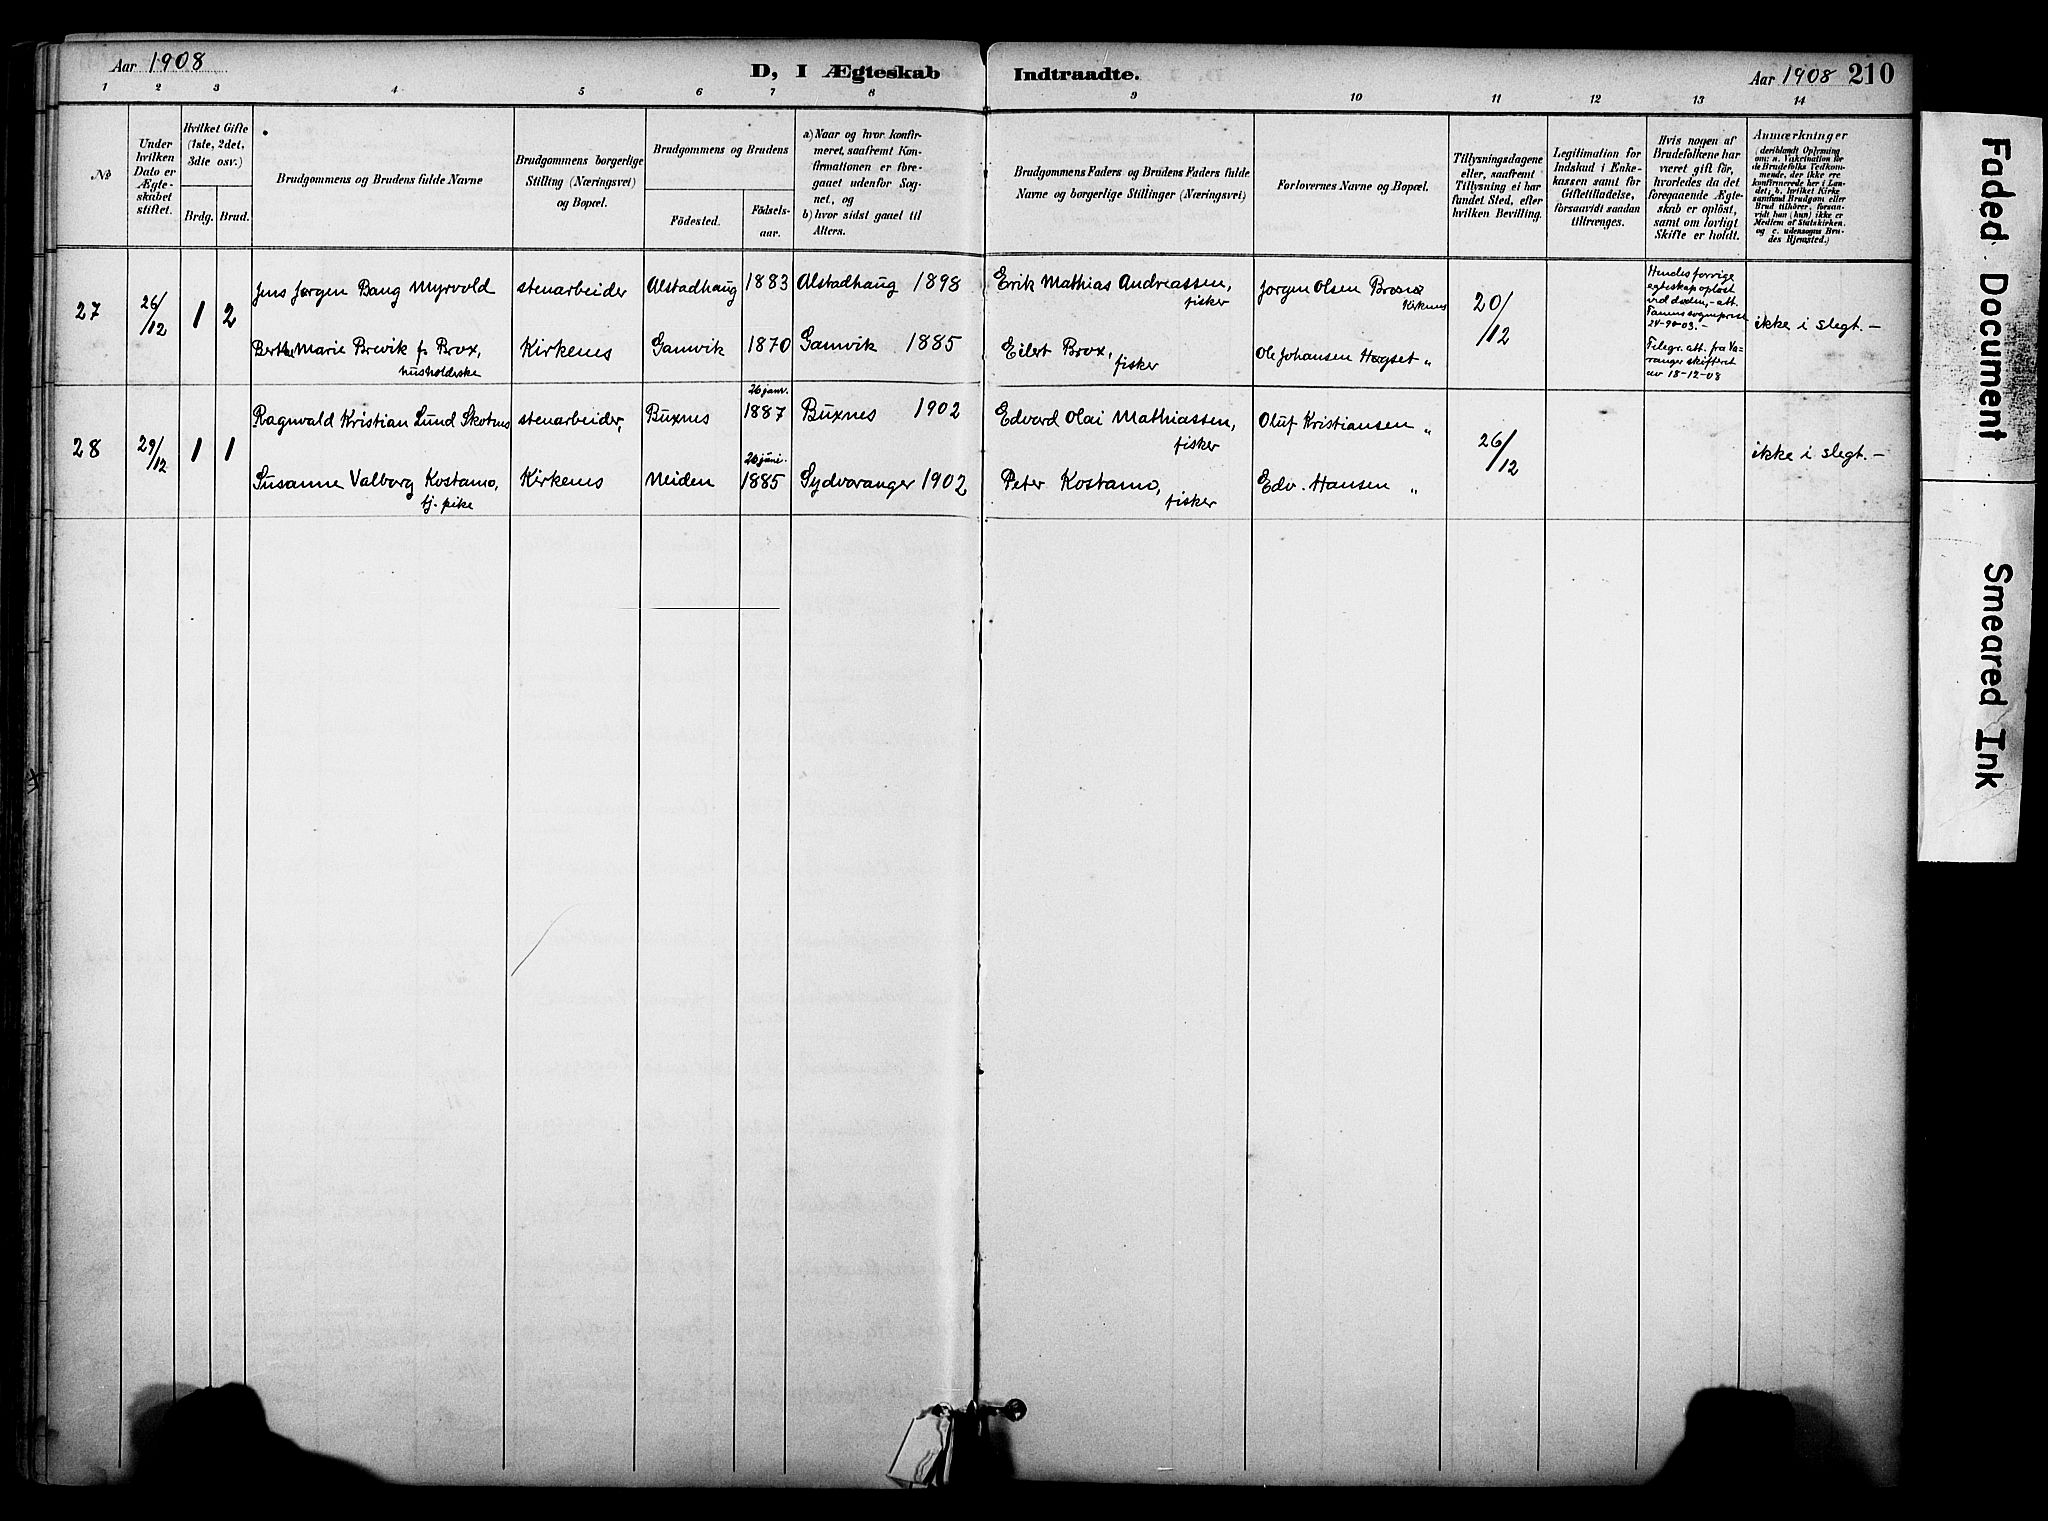 Aar 1908
D, I Ægteskab
Indtraadte.
Aar 1908 210
1 2 3 4 5 6 7 8 9 10 11 12 13 14
No
Under hvilken Dato er Ægteskabet stiftet.
Hvilket Gifte (1ste, 2det, 3die osv.)
Brdg. Brud.
Brudgommens og Brudens fulde Navne
Brudgommens borgerlige
Stilling (Næringsvei)
og Bopæl.
Brudgommens og Brudens
Födested.
Födsels-
aar.
a) Naar og hvor konfir-
meret, saafremt Kon-
firmationen er fore-
gaaet udenfor Sog-
net, og
b) hvor sidst gaaet til
Alters.
Brudgommens Faders og Brudens Faders fulde
Navne og borgerlige Stillinger (Næringsvei)
Forlovernes Navne og Bopæl.
Tillysningsdagene
eller, saafremt
Tillysning ei har
fundet Sted, efter
hvilken Bevilling.
Legitimation for
Indskud i Enke-
kassen samt for
Giftetilladelse,
forsaavidt saadan
tiltrænges.
Hvis nogen af
Brudefolkene har
været gift för,
hvorledes da det
foregaaende Ægte-
skab er oplöst,
samt om lovligt
Skifte er holdt.
Anmærkninger
(deriblandt Oplysning
om: a. Vakcination for
de Brudefolks Vedkom-
mende, der ikke ere
konfirmerede her i Lan-
det; b. hvilket Kirke
samfund Brudgom eller
Brud tilhörer, forsaa-
vidt han (hun) ikke er
Medlem af Statskirken.
og c. udensogns Bru-
des Hjemsted.)
27 26/12 1 2
Jens Jørgen Bang Myrvold stenarbeider Alstadhaug 1883 Alstadhaug 1898 Erik Mathias Andreassen, fisker Jørgen Olsen Kirkenes
Marie Brevik f. Brox, husholderske Kirkenes Gamvik 1870 Gamvik 1885 Eilert Brox, fisker Ole Johansen Hagset "
20/12
Hendes forrige
egteskap opløst
ved døden, - att.
Telegr. att. fra Va-
ranger skifteret
av 18-12-08
ikke i slegt. -
28 29/12 1 1
Ragnvald Kristian Lund Skotnes stenarbeider, Buxnes 26 janr. 1887 Buxnes 1902 Edvard Olai Mathiassen, fisker Oluf Kristiansen "
Susanne Valborg Kostamo, tj. pike Kirkenes Neiden 26 juni. 1885 Sydvaranger 1902 Peter Kostamo, fisker Edv. Hansen "
26/12
ikke i slegt. -
Faded Document
Smeared Ink